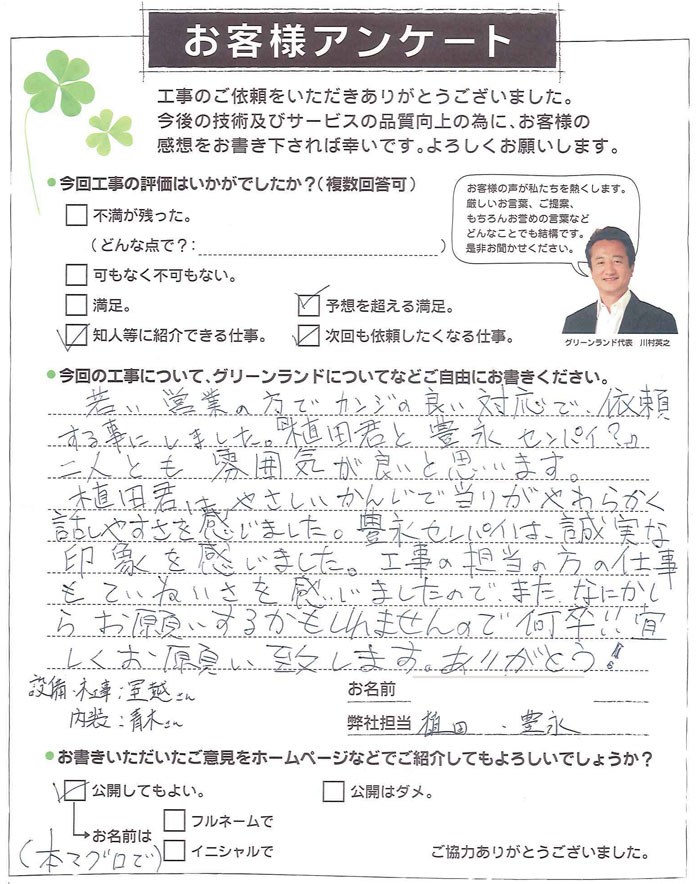 お客様アンケート
工事のご依頼をいただきありがとうございました。
今後の技術及びサービスの品質向上の為に、お客様の
感想をお書き下されば幸いです。よろしくお願いします。
今回工事の評価はいかがでしたか?(複数回答可)
不満が残った。
(どんな点で?: )
可もなく不可もない。
満足。
予想を超える満足。
知人等に紹介できる仕事。
次回も依頼したくなる仕事。
お客様の声が私たちを熱くします。
厳しいお言葉、ご提案、
もちろんお誉めの言葉など
どんなことでも結構です。
是非お聞かせください。
グリーンランド代表 川村英之
今回の工事について、グリーンランドについてなどご自由にお書きください。
若い営業の方でカンジの良い対応で、依頼
する事にしました。『植田君と豊永センパイ?』
二人とも雰囲気が良いと思います。
植田君は、やさしいかんじで当りがやわらかく
話しやすさを感じました。豊永センパイは、誠実な
印象を感じました。工事の担当の方の仕事
もていねいさを感じましたので、また、なにかし
らお願いするかもしれませんので何卒!!宜
しくお願い致します。ありがとう!
設備・木事:室越さん
内装:青木さん
お名前
弊社担当 植田・豊永
お書きいただいたご意見をホームページなどでご紹介してもよろしいでしょうか?
公開してもよい。
公開はダメ。
お名前は
フルネームで
イニシャルで
(本マグロで)
ご協力ありがとうございました。